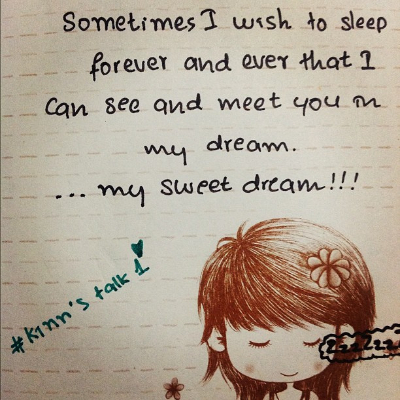 Sometimes I wish to sleep
forever and ever that I
can see and meet you in
my dream.
... my sweet dream!!!
#Kinn's talk 1
zzzzzz